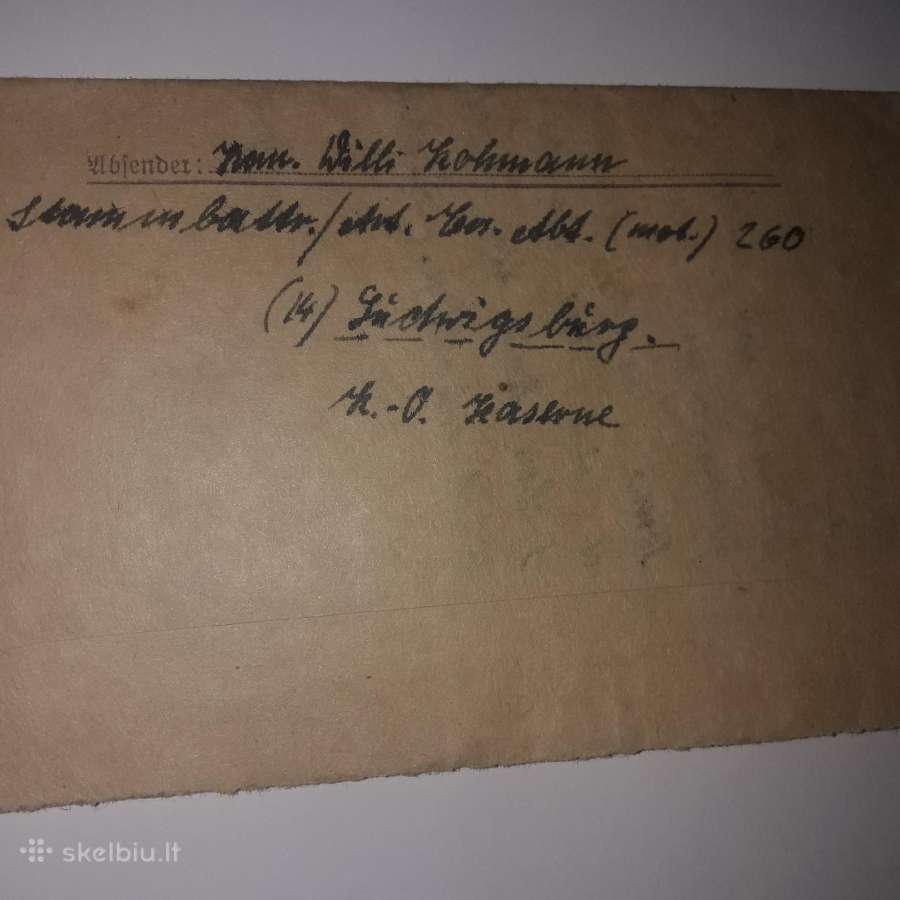 Absender: Kan. Willi Lohmann
Stammbattr./Art. Ers. Abt. (mot.) 260
(14) Ludwigsburg.
K.-O. Kaserne
skelbiu.lt